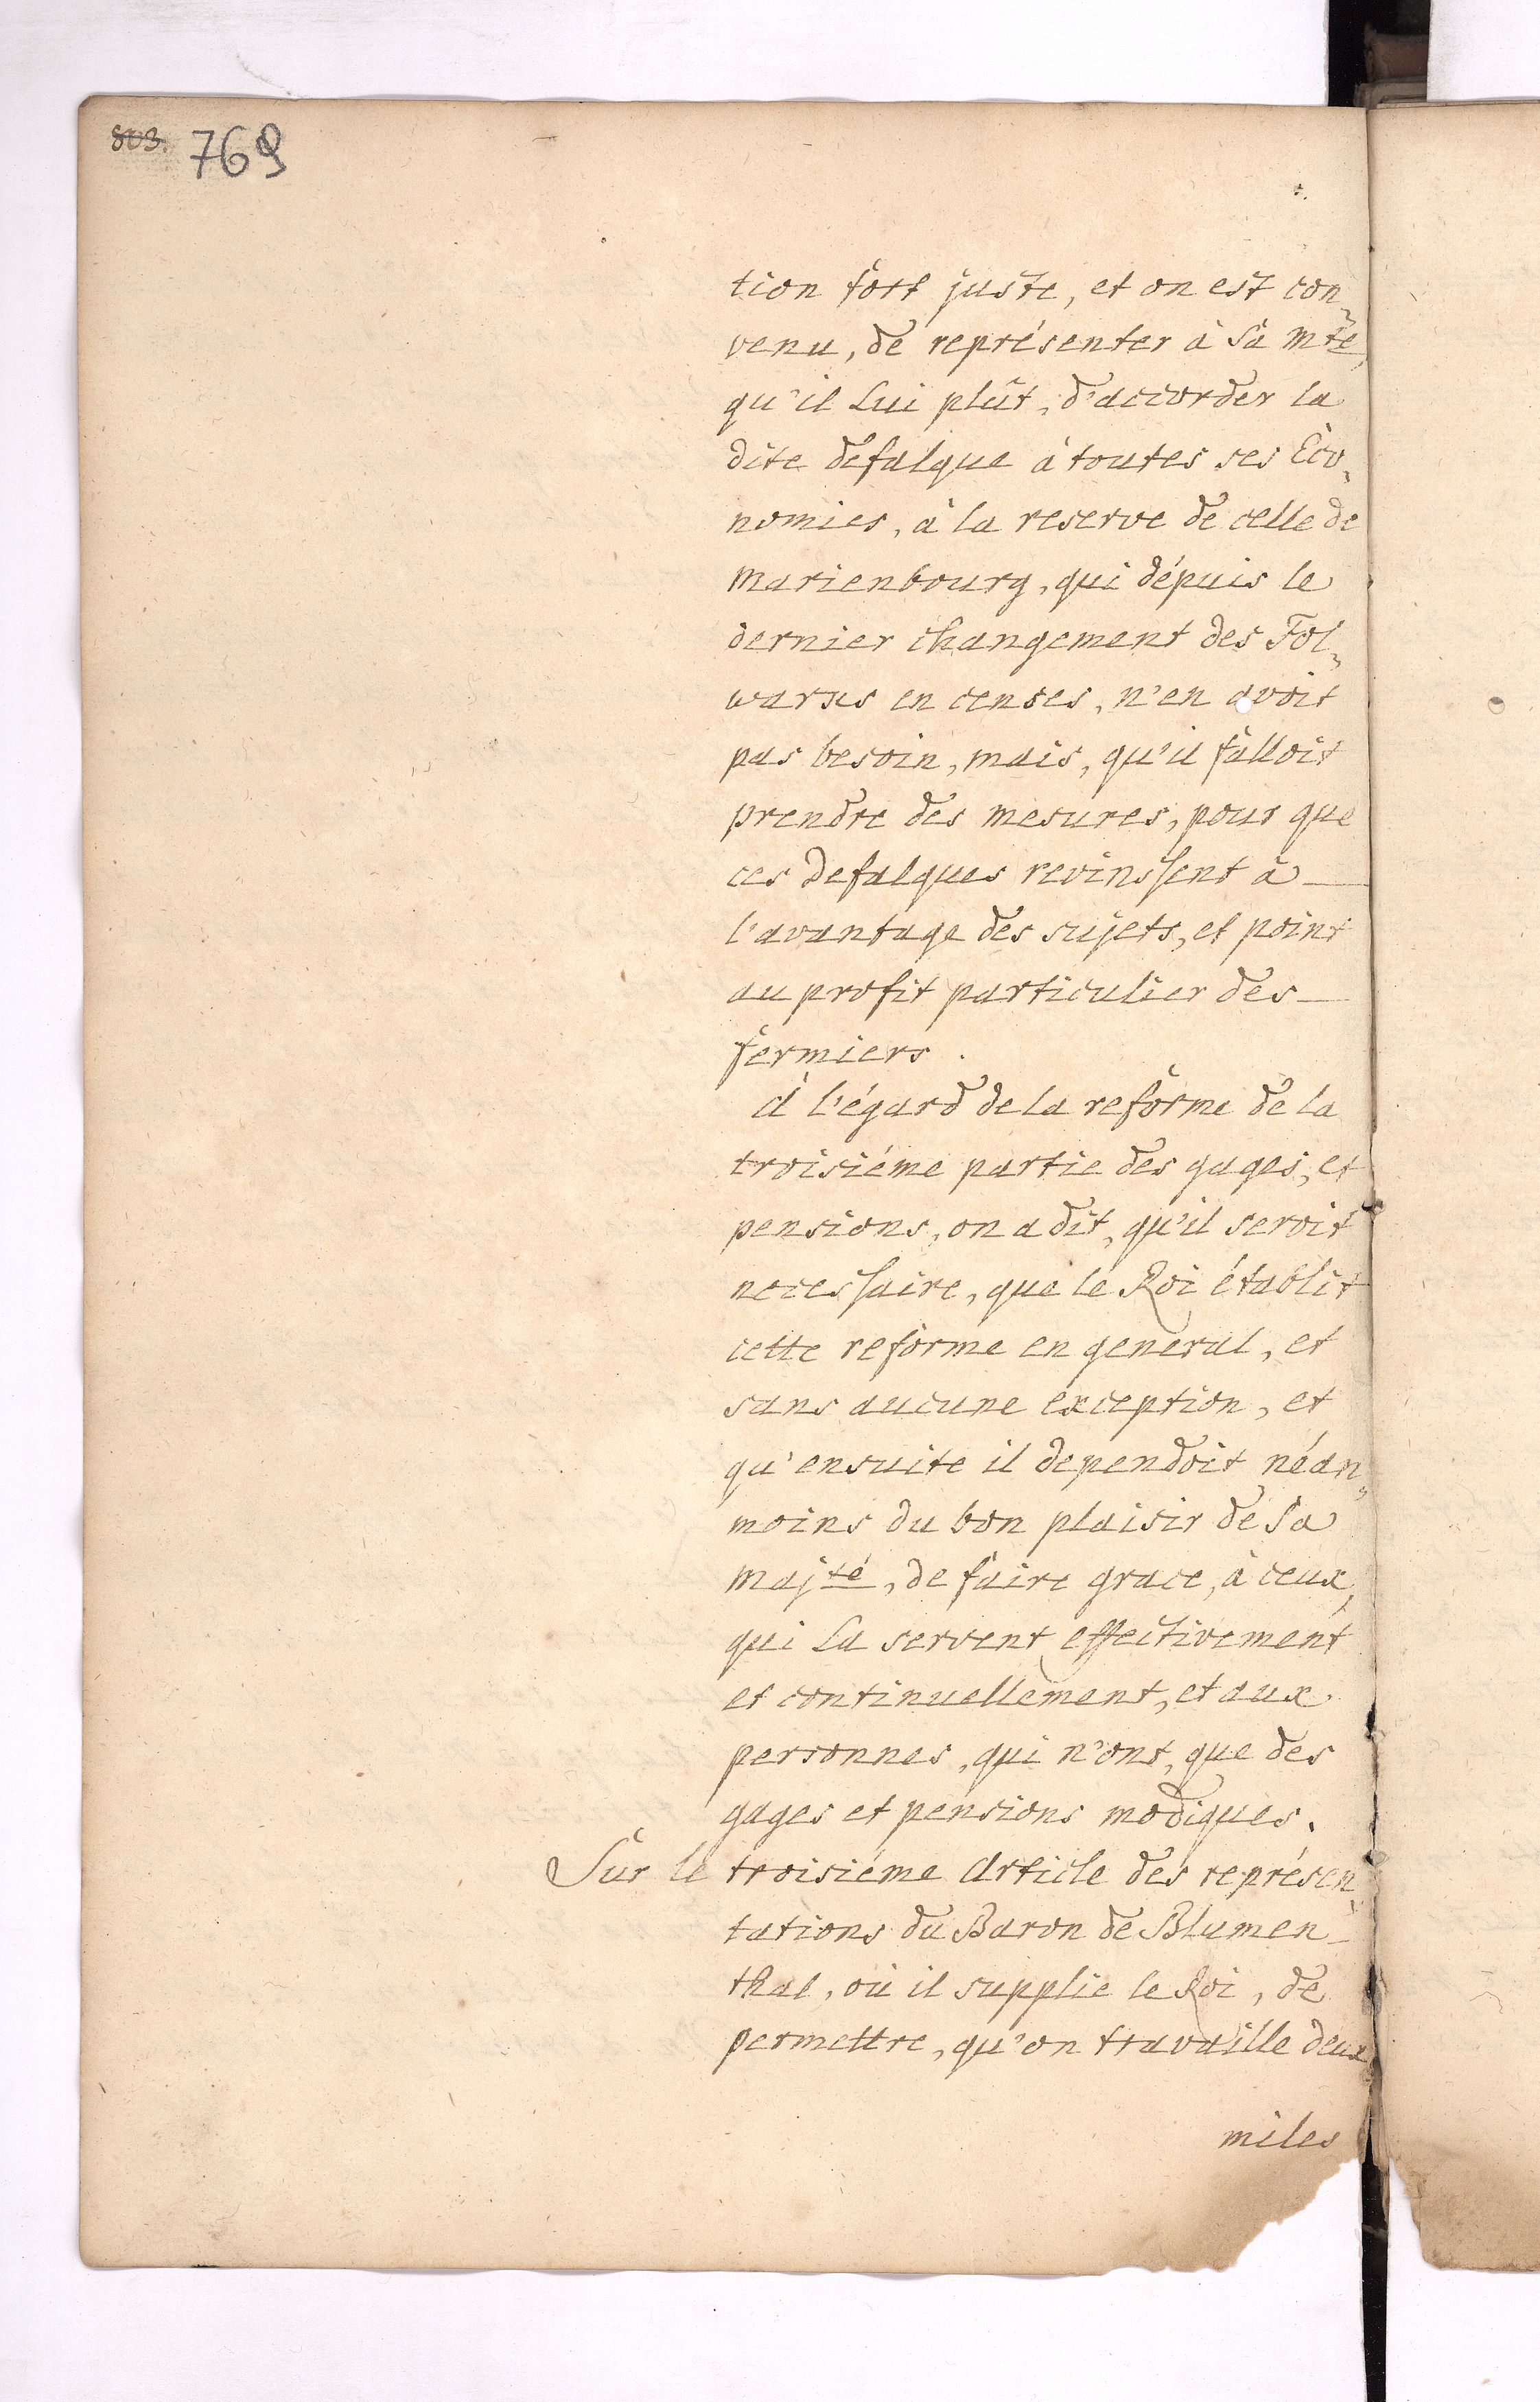 803. 769
tion fort juste, et on est con„
venu, de représenter à Sa Mte,
qu'il Lui plût, d'accorder la
dite defalque à toutes ses Eco„
nomies, à la reserve de celle de
Marienbourg, qui dépuis le
dernier changement des Fol„
warxs en censes, n'en avoit
pas besoin, mais, qu'il falloit
prendre des mesures, pour que
ces defalques revinssent à
l'avantage des sujets, et point
au profit particulier des
fermiers.
A l'égard de la reforme de la
troisiéme partie des gages, et
pensions, on a dit, qu'il seroit
necessaire, que le Roi établit
cette reforme en general, et
sans aucune exception, et
qu'ensuite il dependoit néan„
moins du bon plaisir de Sa
Majté, de faire grace, à ceux,
qui La servent effectivement
et continuellement, et aux
personnes, qui n'ont, que des
gages et pensions modiques.
Sur le troisiéme Article des représen„
tations du Baron de Blumen-
thal, où il supplie le Roi, de
permettre, qu'on travaille deux
miles